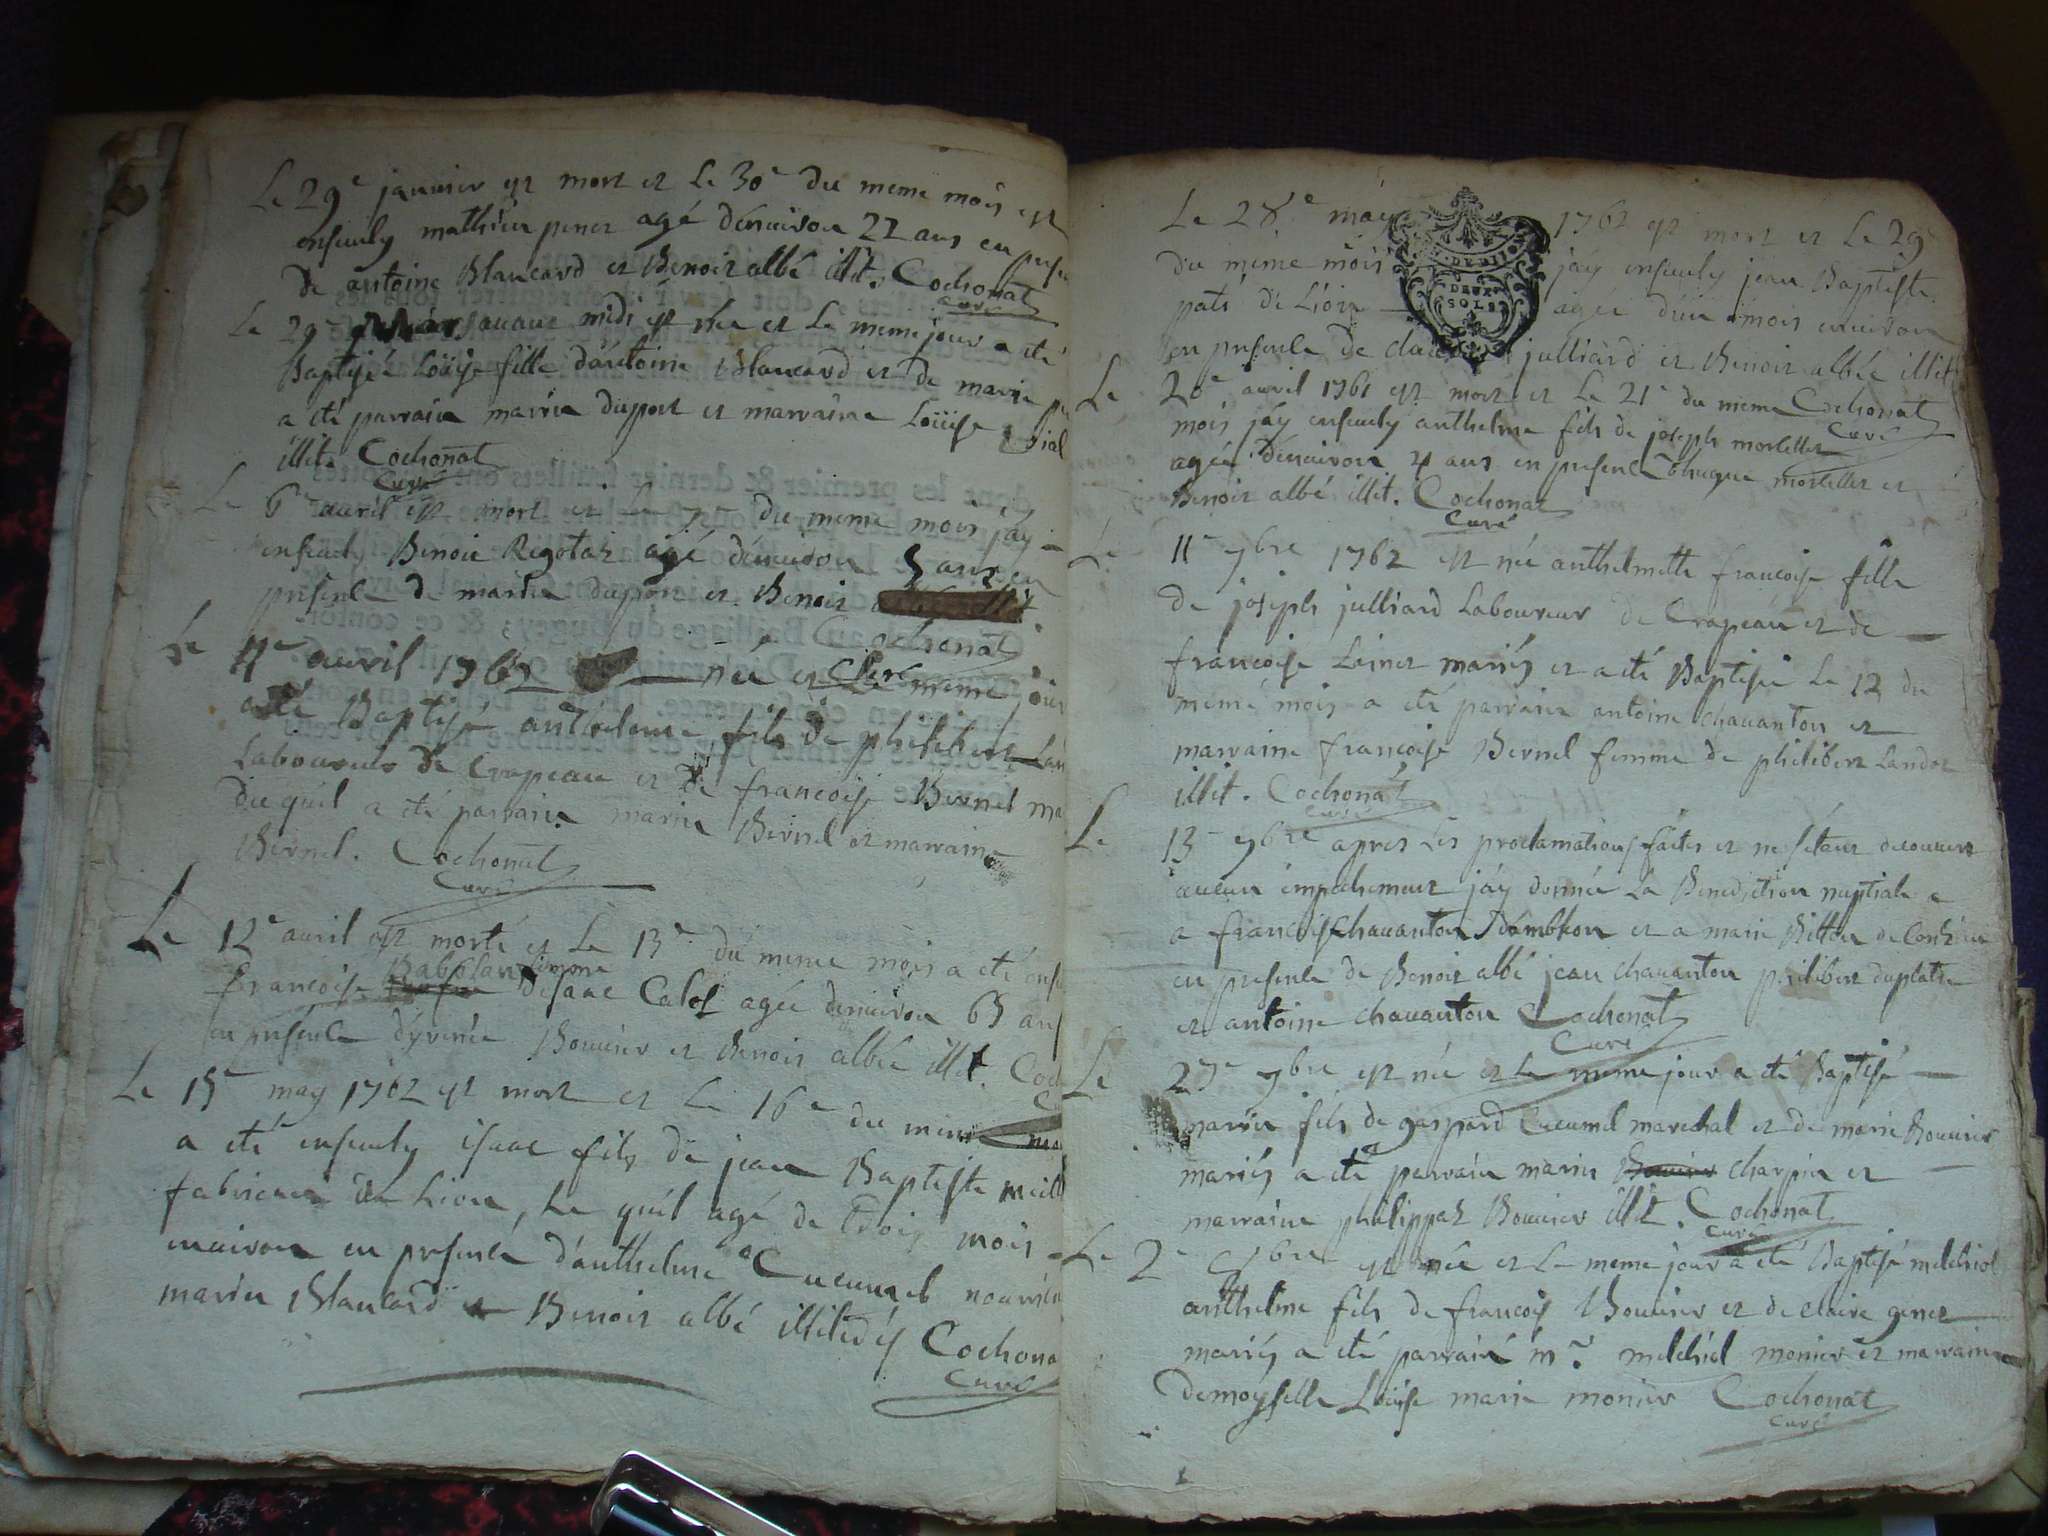 Le 29e janvier est mort et Le 30e du meme mois est
ensevely mathieu penet agé denviron 22 ans en presen
de antoine Blancard et Benoit albé illit. Cochonat
curé
Le 29e mars avant midi est née et Le meme jour a eté
Baptisée Loüise fille d'antoine Blancard et de marie
a eté parrain marin dupont et marraine Loüise
illit. Cochonat
Curé
Le 6e avril est mort et le 7e du meme mois jáy
ensevely Benoit Regotaz agé denviron 5 ans en
presence de marin dupont et Benoit
Cochonat
Curé
Le 11e avril 1762 née et Le meme jour
a eté Baptisé anthelme fils de philibert Lan
Laboureur de Crapeau et de francoise Bernel ma
duquil a eté parrain marin Bernel et marraine
Bernel. Cochonat
Curé
Le 12e avril est morte et Le 13e du meme mois a eté ense
francoise femme Disaac Calos agée denviron 65 ans
en presence d'yrenée Bouvier et Benoit albée illit. Coch
Le 15e may 1762 est mort et Le 16e du meme mois
a eté ensevely isaac fils de jean Baptiste
fabricant de Lion, Le quil agé de trois mois
environ en presence d'anthelme Cucumel nourricie
marin Blancard et Benoit albé illiterés Cochona
Curé
Le 28e may 1762 est mort et Le 29e
DEUX
SOLS
du meme mois jáy ensevely jean Baptiste
paté de Lion — agée d'un mois environ
en presence de julliard et Benoit albée illit
Cochonat
Curé
Le 20e avril 1761 est mort et Le 21e du meme
mois jáy ensevely anthelme fils de joseph mortellet
agée denviron 4 ans en presence mortellet et
Benoit albé illit. Cochonat
Curé
Le 11e 7bre 1762 est née anthelmette francoise fille
de joseph julliard Laboureur de Crapeau et de —
francoise Loinet mariés et a eté Baptisée Le 12 du
meme mois a eté parrain antoine chavanton et
marraine francoise Bernel femme de philibert Landot
illit. Cochonat
Curé
Le 13e 7bre apres Les proclamations faites et ne s'etant decouvert
aucun empechement jáy donnée La Benediction nuptiale a
a francois chavanton d'ambleon et a marie Bitton de Conzieu
en presence de Benoit albé jean chavanton philibert duplatre
et antoine chavanton Cochonat
Curé
Le 27e 7bre est née et Le meme jour a eté Baptisé —
marin fils de gaspard Cucumel marechal et de marie Bouvier
mariés a eté parrain marin charpin et —
marraine philippaz Bouvier illit. Cochonat
Curé
Le 2e 9bre est née et Le meme jour a eté Baptisé melchiol
anthelme fils de francois Bouvier et de claire genet
mariés a eté parrain mr. melchiol monier et marraine
Demoyselle Loüise marie monier Cochonat
Curé